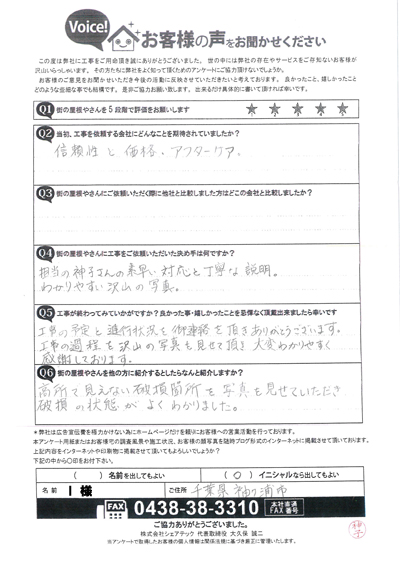 Voice! お客様の声をお聞かせください
この度は弊社に工事をご用命頂き誠にありがとうございました。世の中には弊社の存在やサービスをご存知ないお客様が
沢山いらっしゃいます。その方たちに弊社をよく知って頂くためのアンケートにご協力頂けないでしょうか。
お客様のご意見をお聞かせいただき今後の活動に反映させていただきたいと考えております。良かったこと、嬉しかったこと
どのような些細な事でも結構です。是非ご協力お願い致します。出来るだけ具体的に書いて頂ければ幸いです。
Q1 街の屋根やさんを5段階で評価をお願いします ★ ★ ★ ★ ★
Q2 当初、工事を依頼する会社にどんなことを期待されていましたか?
信頼性と価格・アフターケア。
Q3 街の屋根やさんにご依頼いただく際に他社と比較しました方はどこの会社と比較しましたか?
Q4 街の屋根やさんに工事をご依頼いただいた決め手は何ですか?
担当の神子さんの素早い対応と丁寧な説明。
わかりやすい沢山の写真。
Q5 工事が終わってみていかがですか?良かった事・嬉しかったことを忌憚なく頂戴出来ましたら幸いです
工事の予定と進行状況を御連絡を頂きありがとうございます。
工事の過程を沢山の写真を見せて頂き大変わかりやすく
感謝しております。
Q6 街の屋根やさんを他の方に紹介するとしたらなんと紹介しますか?
高所で見えない破損箇所を写真を見せていただき
破損の状態がよくわかりました。
*弊社は広告宣伝費を極力かけない為にホームページだけを頼りにお客様への営業活動を行っております。
本アンケート用紙またはお客様宅の調査風景や施工状況、お客様の顔写真を随時ブログ形式のインターネットに掲載させて頂いております。
上記内容をインターネットや印刷物に掲載させて頂いてもよろしいでしょうか?
下記の中から〇印をお付け下さい。
( ) 名前を出してもよい ( 〇 ) イニシャルなら出してもよい
名前 I 様 ご住所 千葉県袖ケ浦市
FAX 0438-38-3310 本社直通 FAX番号
ご協力ありがとうございました。
株式会社シェアテック 代表取締役 大久保 誠二
※アンケートで取得したお客様の個人情報は関係法規に基づき厳正に管理いたします。
神子